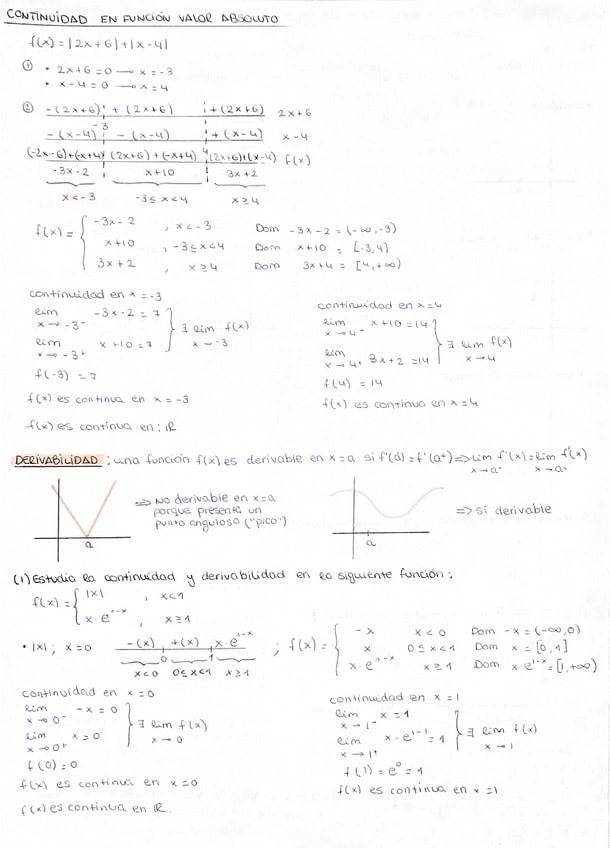 CONTINUIDAD EN FUNCIÓN VALOR ABSOLUTO
f(x) = |2x+6|+|x-4|
① • 2x+6=0 → x=-3
• x-4=0 → x=4
② -(2x+6) + (2x+6) + (2x+6) 2x+6
-3
-(x-4) -(x-4) +(x-4) x-4
4
(-2x-6)+(-x+4) (2x+6)+(-x+4) (2x+6)+(x-4) f(x)
-3x-2 x+10 3x+2
x<-3 -3≤x<4 x≥4
f(x) = { -3x-2 , x<-3 Dom -3x-2 = (-∞,-3)
x+10 , -3≤x<4 Dom x+10 = [-3,4)
3x+2 , x≥4 Dom 3x+4 = [4,+∞)
continuidad en x=-3
lim x→-3⁻ -3x-2 = 7
lim x→-3⁺ x+10=7 } ∃ lim x→-3 f(x)
f(-3) = 7
f(x) es continua en x=-3
f(x) es continua en: ℝ
continuidad en x=4
lim x→4⁻ x+10=14
lim x→4⁺ 3x+2=14 } ∃ lim x→4 f(x)
f(4) = 14
f(x) es continua en x=4
DERIVABILIDAD : una función f(x) es derivable en x=a si f'(a⁻)=f'(a⁺)⇒ lim x→a⁻ f'(x)= lim x→a⁺ f'(x)
a
⇒ No derivable en x=a
porque presenta un
punto anguloso ("pico")
a
⇒ sí derivable
(1) Estudia la continuidad y derivabilidad en la siguiente función:
f(x) = { |x| , x<1
x·e^1-x , x≥1
• |x| ; x=0 -(x) +(x) x·e^1-x ; f(x) = { -x x<0 Dom -x = (-∞,0)
0 1 x 0≤x<1 Dom x = [0,1]
x<0 0≤x<1 x≥1 x·e^1-x x≥1 Dom x·e^1-x = [1,+∞)
continuidad en x=0
lim x→0⁻ -x=0
lim x→0⁺ x=0 } ∃ lim x→0 f(x)
f(0)=0
f(x) es continua en x=0
f(x) es continua en ℝ.
continuidad en x=1
lim x→1⁻ x=1
lim x→1⁺ x·e^1-1=1 } ∃ lim x→1 f(x)
f(1)=e⁰=1
f(x) es continua en x=1